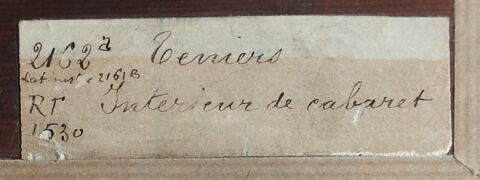 2162 a Teniers
2161B
RF Interieur de cabaret
1530